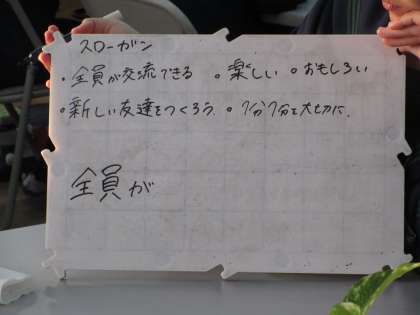 スローガン
・全員が交流できる ○楽しい ○おもしろい
・新しい友達をつくろう ○1分1分を大切に.
全員が